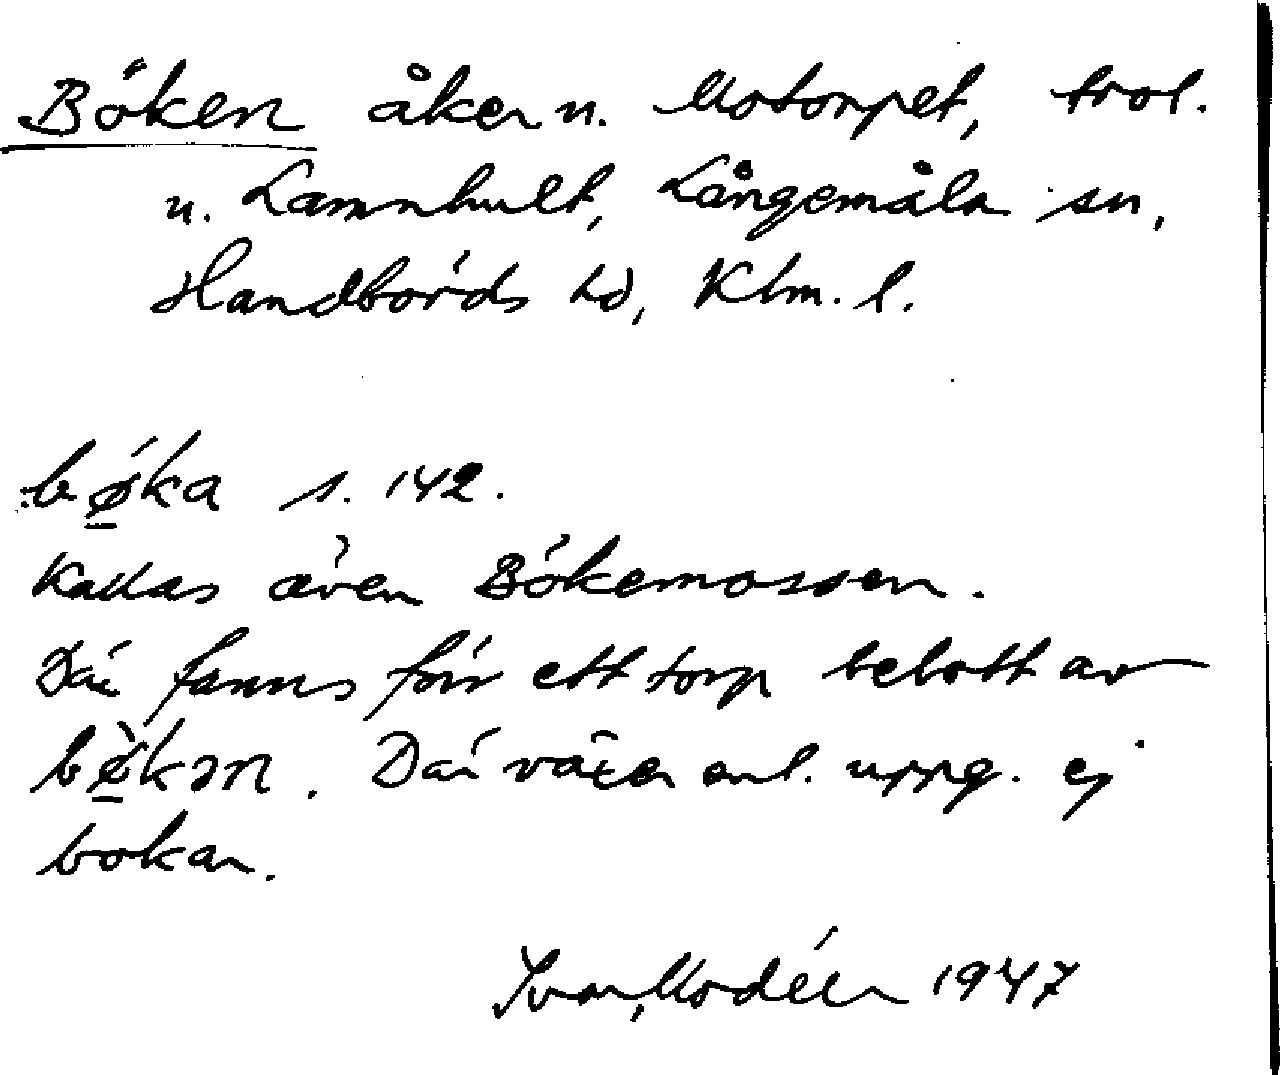 Böken åker u. Motorpet, trol.
u. Lamnhult, Långemåla sn,
Handbörds hd, Klm. l.
bø̱ka s. 142.
Kallas även Bökemossen.
Där fanns förr ett torp bebott av
bø̱̀kən. Där växer enl. uppg. ej
bokar.
Ivar Modéer 1947